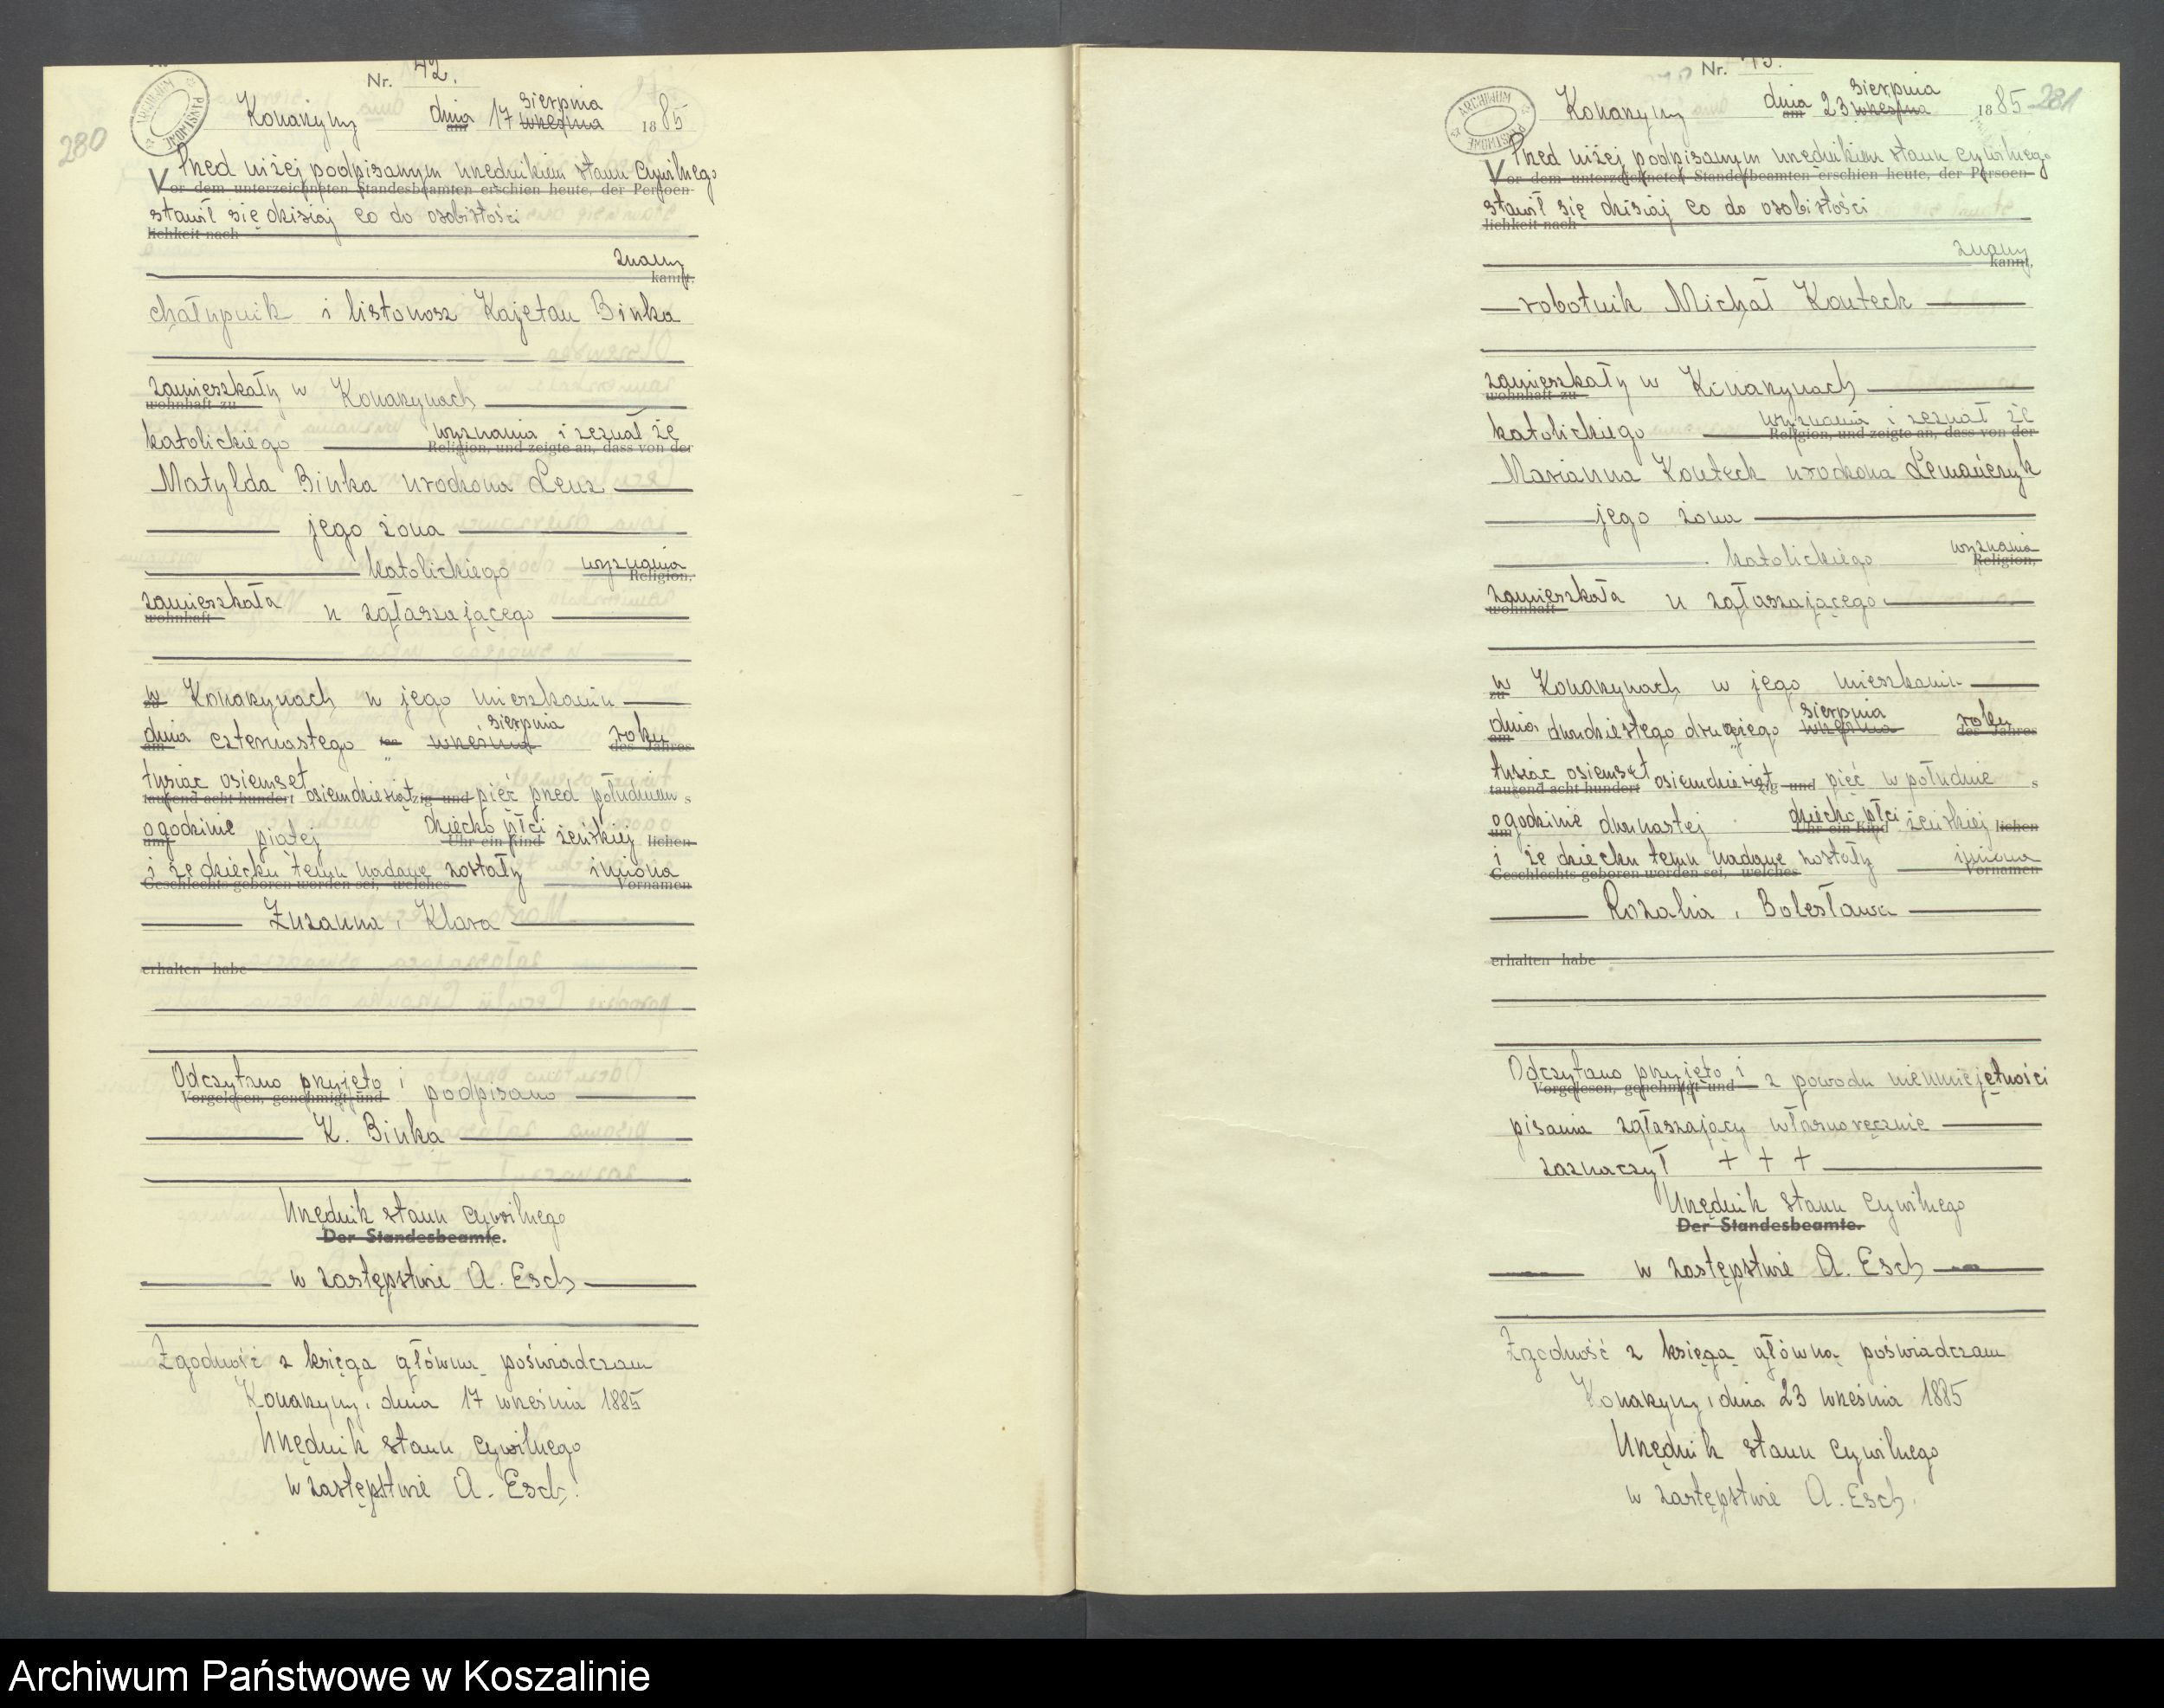 280
Nr. 42.
ARCHIWUM PAŃSTWOWE
sierpnia
Konarzyny dnia am 17 września 1885
Przed niżej podpisanym urzędnikiem stanu cywilnego
Vor dem unterzeichneten Standesbeamten erschien heute, der Persoen-
stawił się dzisiaj co do osobistości
lichkeit nach
znany
kannt,
chałupnik i listonosz Kajetan Binka
zamieszkały w Konarzynach
wohnhaft zu
katolickiego wyznania i zeznał że
Religion, und zeigte an, dass von der
Matylda Binka urodzona Lenz
jego żona
katolickiego wyznania
Religion,
zamieszkała u zgłaszającego
wohnhaft
w Konarzynach w jego mieszkaniu
zu
sierpnia
dnia czternastego września roku
am des Jahres
tysiąc osiemset osiemdziesiąt pięć przed południem
tausend acht hundert zig und s
o godzinie piątej dziecko płci żeńskiej
um Uhr ein Kind lichen
i że dziecku temu nadane zostały imiona
Geschlechts geboren worden sei, welches Vornamen
Zuzanna, Klara
erhalten habe
Odczytano przyjęto i podpisano
Vorgelesen, genehmigt und
K. Binka
Urzędnik stanu cywilnego
Der Standesbeamte.
w zastępstwie A. Esch
Zgodność z księgą główną poświadczam
Konarzyny, dnia 17 września 1885
Urzędnik stanu cywilnego
w zastępstwie A. Esch.
Nr. 43.
281
ARCHIWUM PAŃSTWOWE
sierpnia
Konarzyny dnia am 23 września 1885
Przed niżej podpisanym urzędnikiem stanu cywilnego
Vor dem unterzeichneten Standesbeamten erschien heute, der Persoen-
stawił się dzisiaj co do osobistości
lichkeit nach
znany
kannt,
robotnik Michał Konteck
zamieszkały w Konarzynach
wohnhaft zu
katolickiego wyznania i zeznał że
Religion, und zeigte an, dass von der
Marianna Konteck urodzona Lemańczyk
jego żona
katolickiego wyznania
Religion,
zamieszkała u zgłaszającego
wohnhaft
w Konarzynach w jego mieszkaniu
zu
sierpnia
dnia dwudziestego drugiego września roku
am des Jahres
tysiąc osiemset osiemdziesiąt pięć w południe
tausend acht hundert zig und s
o godzinie dwunastej dziecko płci żeńskiej
um Uhr ein Kind lichen
i że dziecku temu nadane zostały imiona
Geschlechts geboren worden sei, welches Vornamen
Rozalia, Bolesława
erhalten habe
Odczytano przyjęto i z powodu nieumiejętności
Vorgelesen, genehmigt und
pisania zgłaszający własnoręcznie
zaznaczył + + +
Urzędnik stanu cywilnego
Der Standesbeamte.
w zastępstwie A. Esch
Zgodność z księgą główną poświadczam
Konarzyny, dnia 23 września 1885
Urzędnik stanu cywilnego
w zastępstwie A. Esch.
Archiwum Państwowe w Koszalinie